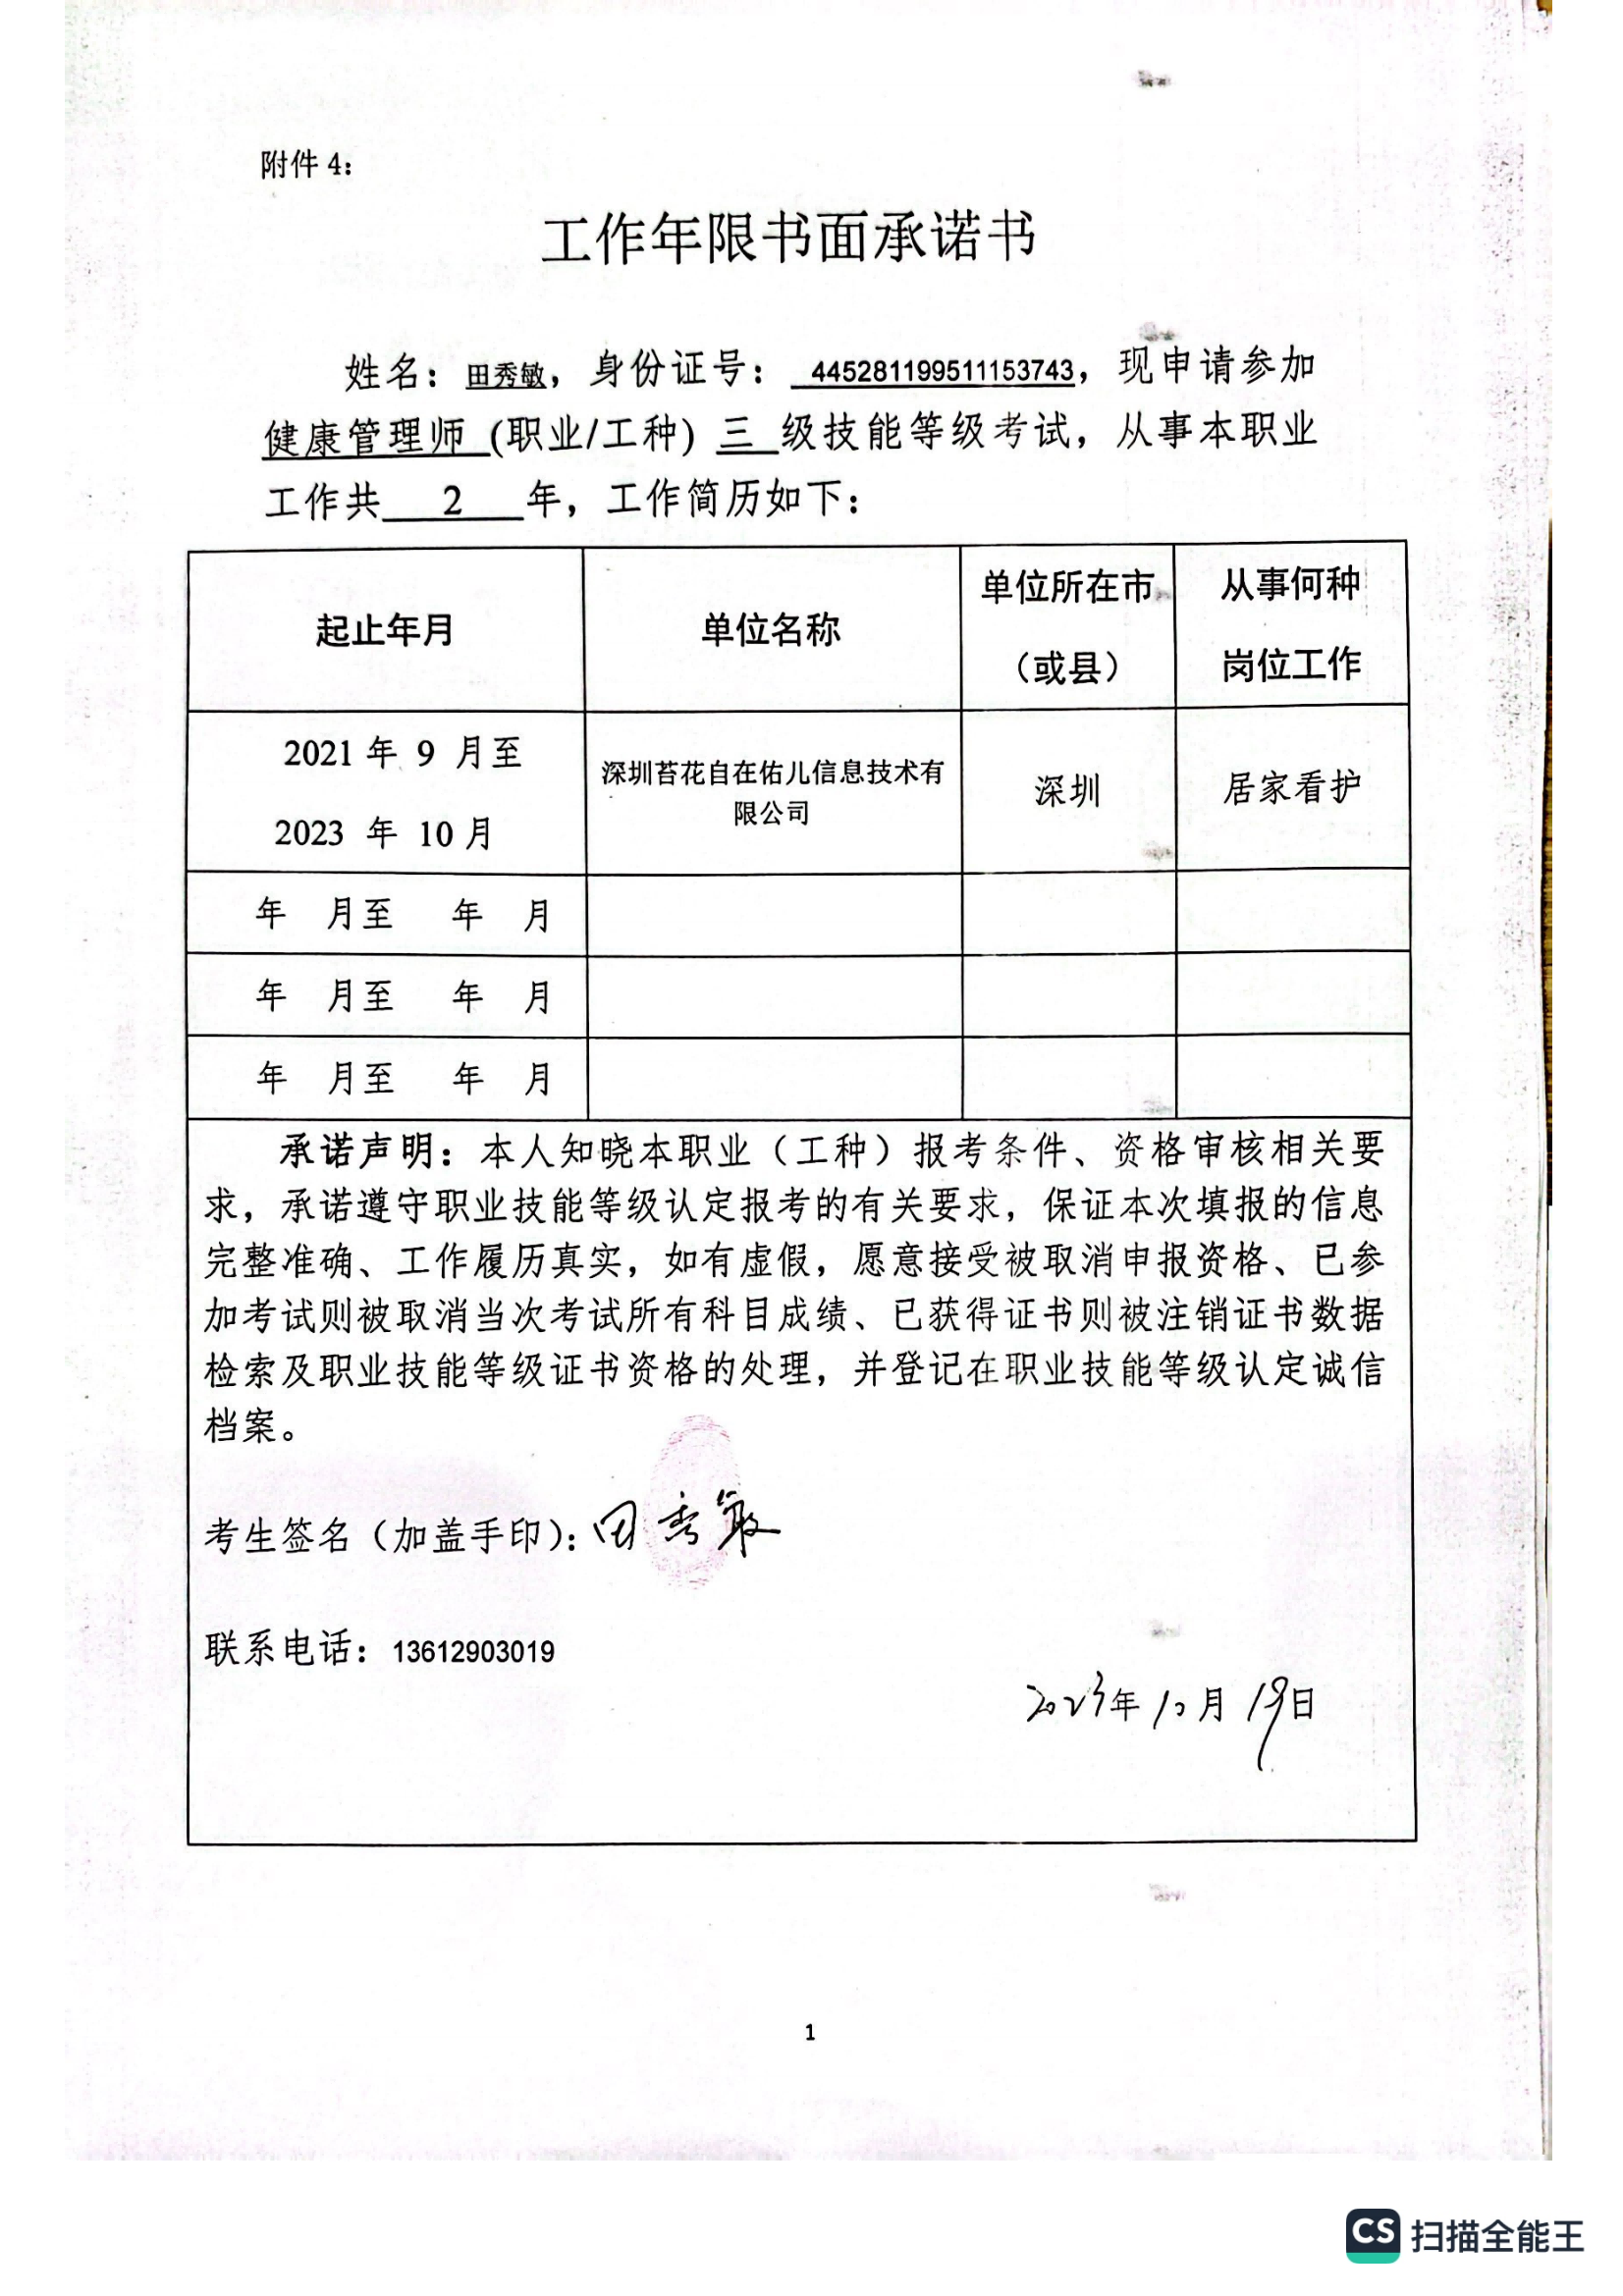 附件 4：
工作年限书面承诺书
姓名：田秀敏，身份证号： 445281199511153743，现申请参加
健康管理师 (职业/工种) 三 级技能等级考试，从事本职业
工作共 2 年，工作简历如下：
起止年月 单位名称 单位所在市（或县） 从事何种岗位工作
2021 年 9 月至
2023 年 10 月
深圳苔花自在佑儿信息技术有
限公司
深圳
居家看护
年 月至 年 月
年 月至 年 月
年 月至 年 月
承诺声明：本人知晓本职业（工种）报考条件、资格审核相关要
求，承诺遵守职业技能等级认定报考的有关要求，保证本次填报的信息
完整准确、工作履历真实，如有虚假，愿意接受被取消申报资格、已参
加考试则被取消当次考试所有科目成绩、已获得证书则被注销证书数据
检索及职业技能等级证书资格的处理，并登记在职业技能等级认定诚信
档案。
考生签名（加盖手印）：田秀敏
联系电话：13612903019
2023年10月19日
1
CS 扫描全能王